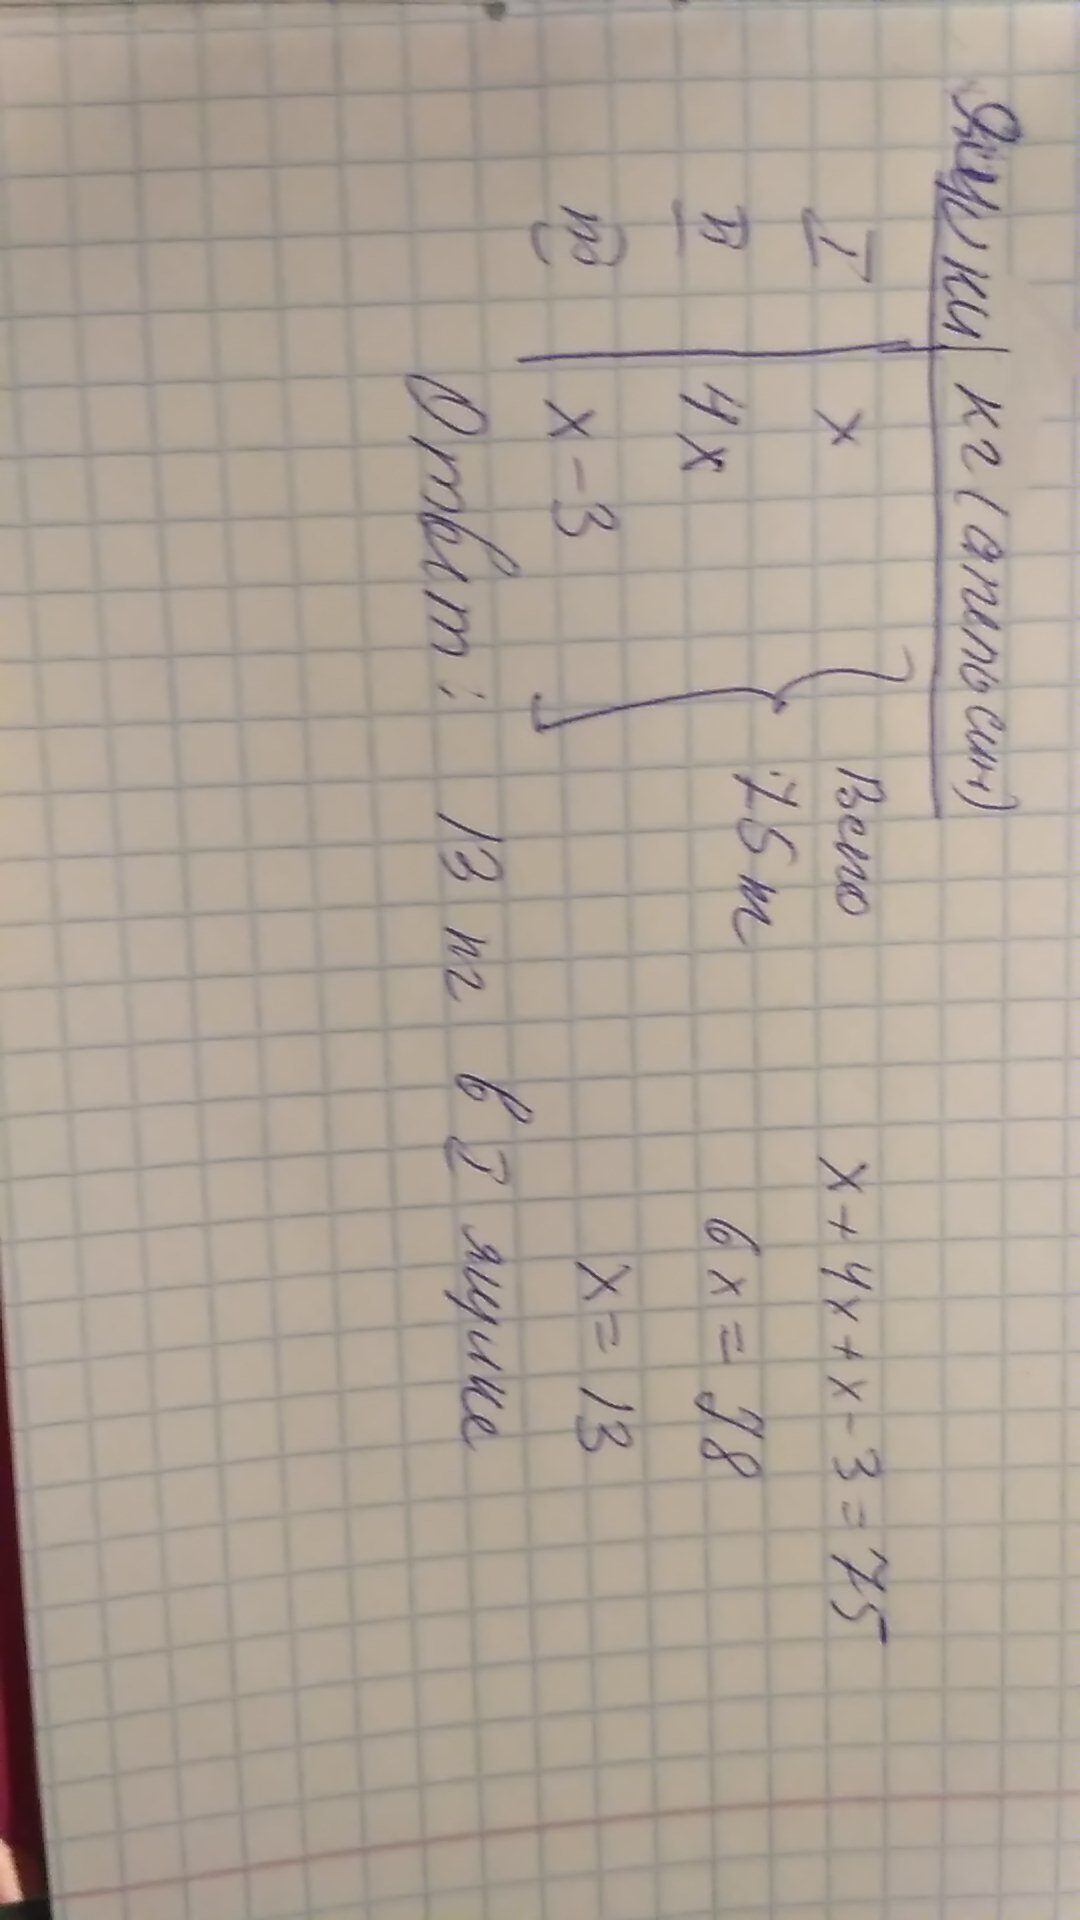 Ящики кг (апельсин)
I x Всего x + 4x + x - 3 = 75
II 4x 75 кг 6x = 78
III x - 3 x = 13
Ответ: 13 кг в I ящике